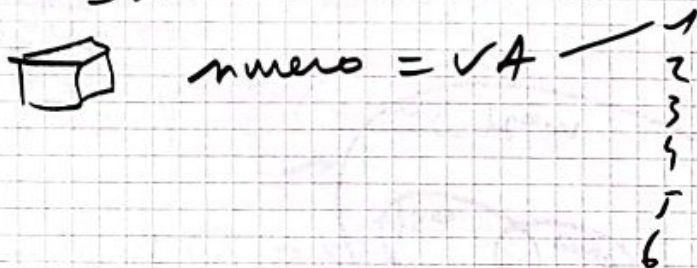 numero = VA 1
2
3
4
5
6